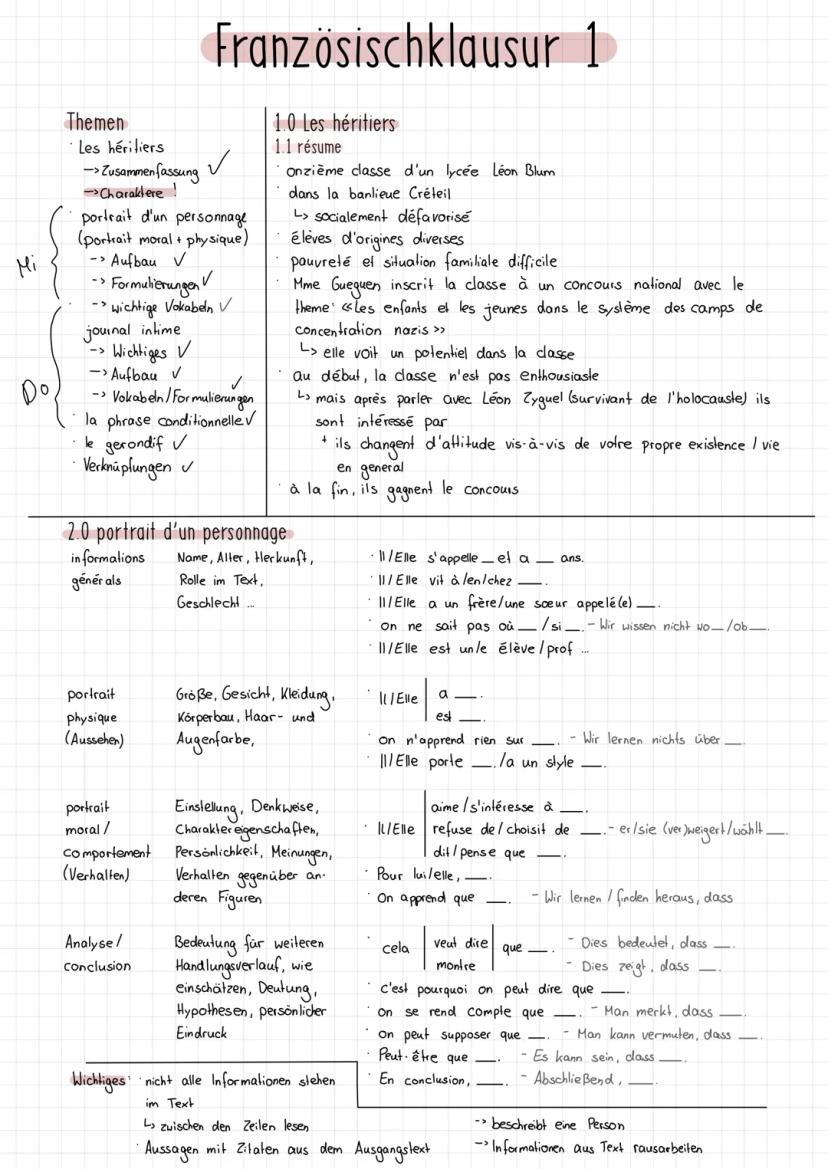 Französischklausur 1
Themen
· Les héritiers
-> Zusammenfassung ✓
-> Charaktere !
· portrait d'un personnage
(portrait moral + physique)
-> Aufbau ✓
Mi
-> Formulierungen ✓
-> wichtige Vokabeln ✓
· journal intime
-> Wichtiges ✓
-> Aufbau ✓
Do
-> Vokabeln/Formulierungen ✓
· la phrase conditionnelle ✓
· le gerondif ✓
· Verknüpfungen ✓
1.0 Les héritiers
1.1 résume
· onzième classe d'un lycée Léon Blum
· dans la banlieue Créteil
↳ socialement défavorisé
· élèves d'origines diverses
· pauvreté et situation familiale difficile
· Mme Gueguen inscrit la classe à un concours national avec le
theme: «Les enfants et les jeunes dans le système des camps de
concentration nazis »
↳ elle voit un potentiel dans la classe
· au début, la classe n'est pas enthousiaste
↳ mais après parler avec Léon Zyguel (survivant de l'holocauste) ils
sont intéressé par
+ ils changent d'attitude vis-à-vis de votre propre existence / vie
en general
· à la fin, ils gagnent le concours
2.0 portrait d'un personnage
informations Name, Alter, Herkunft, · Il/Elle s'appelle __ et a __ ans.
générals Rolle im Text, · Il/Elle vit à/en/chez __.
Geschlecht ... · Il/Elle a un frère/une sœur appelé(e) __.
· on ne sait pas où __ /si __. - Wir wissen nicht wo __/ob __.
· Il/Elle est un/e élève/prof ...
portrait Größe, Gesicht, Kleidung, · Il/Elle a __.
physique Körperbau, Haar- und est __.
(Aussehen) Augenfarbe, · On n'apprend rien sur __. - Wir lernen nichts über __.
· Il/Elle porte __./a un style __.
portrait Einstellung, Denkweise, aime/s'intéresse à __.
moral / Charaktereigenschaften, · Il/Elle refuse de/choisit de __. - er/sie (ver)weigert/wählt __.
comportement Persönlichkeit, Meinungen, dit/pense que __.
(Verhalten) Verhalten gegenüber an- · Pour lui/elle, __.
deren Figuren · On apprend que __. - Wir lernen / finden heraus, dass
Analyse/ Bedeutung für weiteren · cela veut dire que __. - Dies bedeutet, dass __.
conclusion Handlungsverlauf, wie montre - Dies zeigt, dass __.
einschätzen, Deutung, · c'est pourquoi on peut dire que __.
Hypothesen, persönlicher · on se rend comple que __. - Man merkt, dass __.
Eindruck · on peut supposer que __. - Man kann vermuten, dass __.
· Peut-être que __. - Es kann sein, dass __.
· En conclusion, __. - Abschließend, __.
Wichtiges: · nicht alle Informationen stehen
im Text
↳ zwischen den Zeilen lesen
· Aussagen mit Zitaten aus dem Ausgangstext
-> beschreibt eine Person
-> Informationen aus Text rausarbeiten